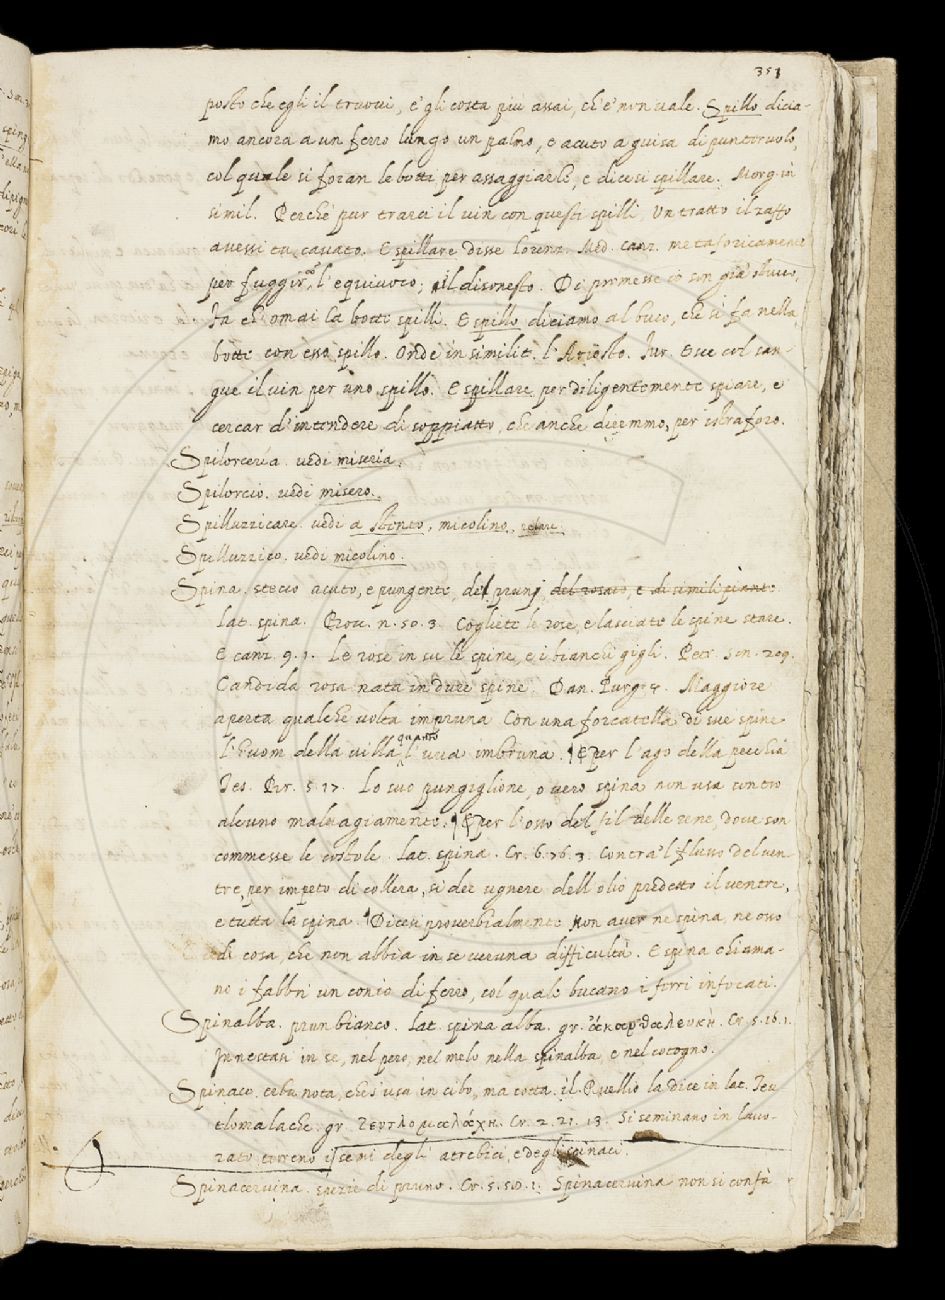 351
posto che egli il truovi, e' gli costa piu assai, ch'e' non vale. Spillo dicia-
mo ancora a un ferro lungo un palmo, e acuto a guisa di punteruolo,
col quale si foran le botti per assaggiarle, e dicesi spillare. Morg. in
simil. Perchè pur trarci il vin con questi spilli, Un tratto il zaffo
avessi tu cavato. E spillare disse Lorenz. Med. canz. metaforicamente
per fuggir l'equivoco, il disonesto. Di promesse io son già stucco,
Fa ch'omai la botte spilli. E spillo diciamo al buco, che si fa nella
botte con esso spillo. Onde in similit. l'Ariosto. Fur. Esce col san-
gue il vin per uno spillo. E spillare per diligentemente spiare, e
cercar d'intendere di soppiatto, che anche diremmo, per istraforo.
Spilorceria. vedi miseria.
Spilorcio. vedi misero.
Spilluzzicare. vedi a stento, micolino,
Spilluzzico. vedi micolino.
Spina. stecco acuto, e pungente, de' pruni del rosaio, e di simili piante.
Lat. spina. Bocc. n. 50. 3. Cogliete le rose, e lasciate le spine stare.
E canz. 9. 1. Le rose in su le spine, e i bianchi gigli. Petr. Son. 209.
Candida rosa nata in dure spine. Dan. Purg. 4. Maggiore
aperta qualche volta impruna Con una forcatella di sue spine
l'huom della villa quando l'uva imbruna. ¶ E per l'ago della pecchia
Tes. Br. 5. 17. Lo suo pungiglione, o vero spina non usa contro
alcuno malvagiamente. ¶ E per l'osso del fil delle rene, dove son
commesse le costole. Lat. spina. Cr. 6. 76. 3. Contra'l flusso del ven-
tre, per impeto di collera, si dee ugnere dell'olio predetto il ventre,
e tutta la spina. ¶ Dicesi proverbialmente Non aver nè spina, nè osso
di cosa, che non abbia in se veruna difficultà. E spina chiama-
no i fabbri un conio di ferro, col quale bucano i ferri infocati.
Spinalba. prun bianco. Lat. spina alba. gr. ἄκανθα λευκη. Cr. 5. 16. 1.
Innestasi in se, nel pero, nel melo nella spinalba, e nel cotogno.
Spinace. erba nota, che s'usa in cibo, ma cotta. il Ruellio la dice in lat. Teu
tlomalache. gr. τευτλομαλάχη. Cr. 2. 21. 13. Si seminano in lavo-
rato terreno i semi degli atrebici, e degli spinaci.
Spinacervina. spezie di pruno. Cr. 5. 50. 1. Spinacervina non si confà